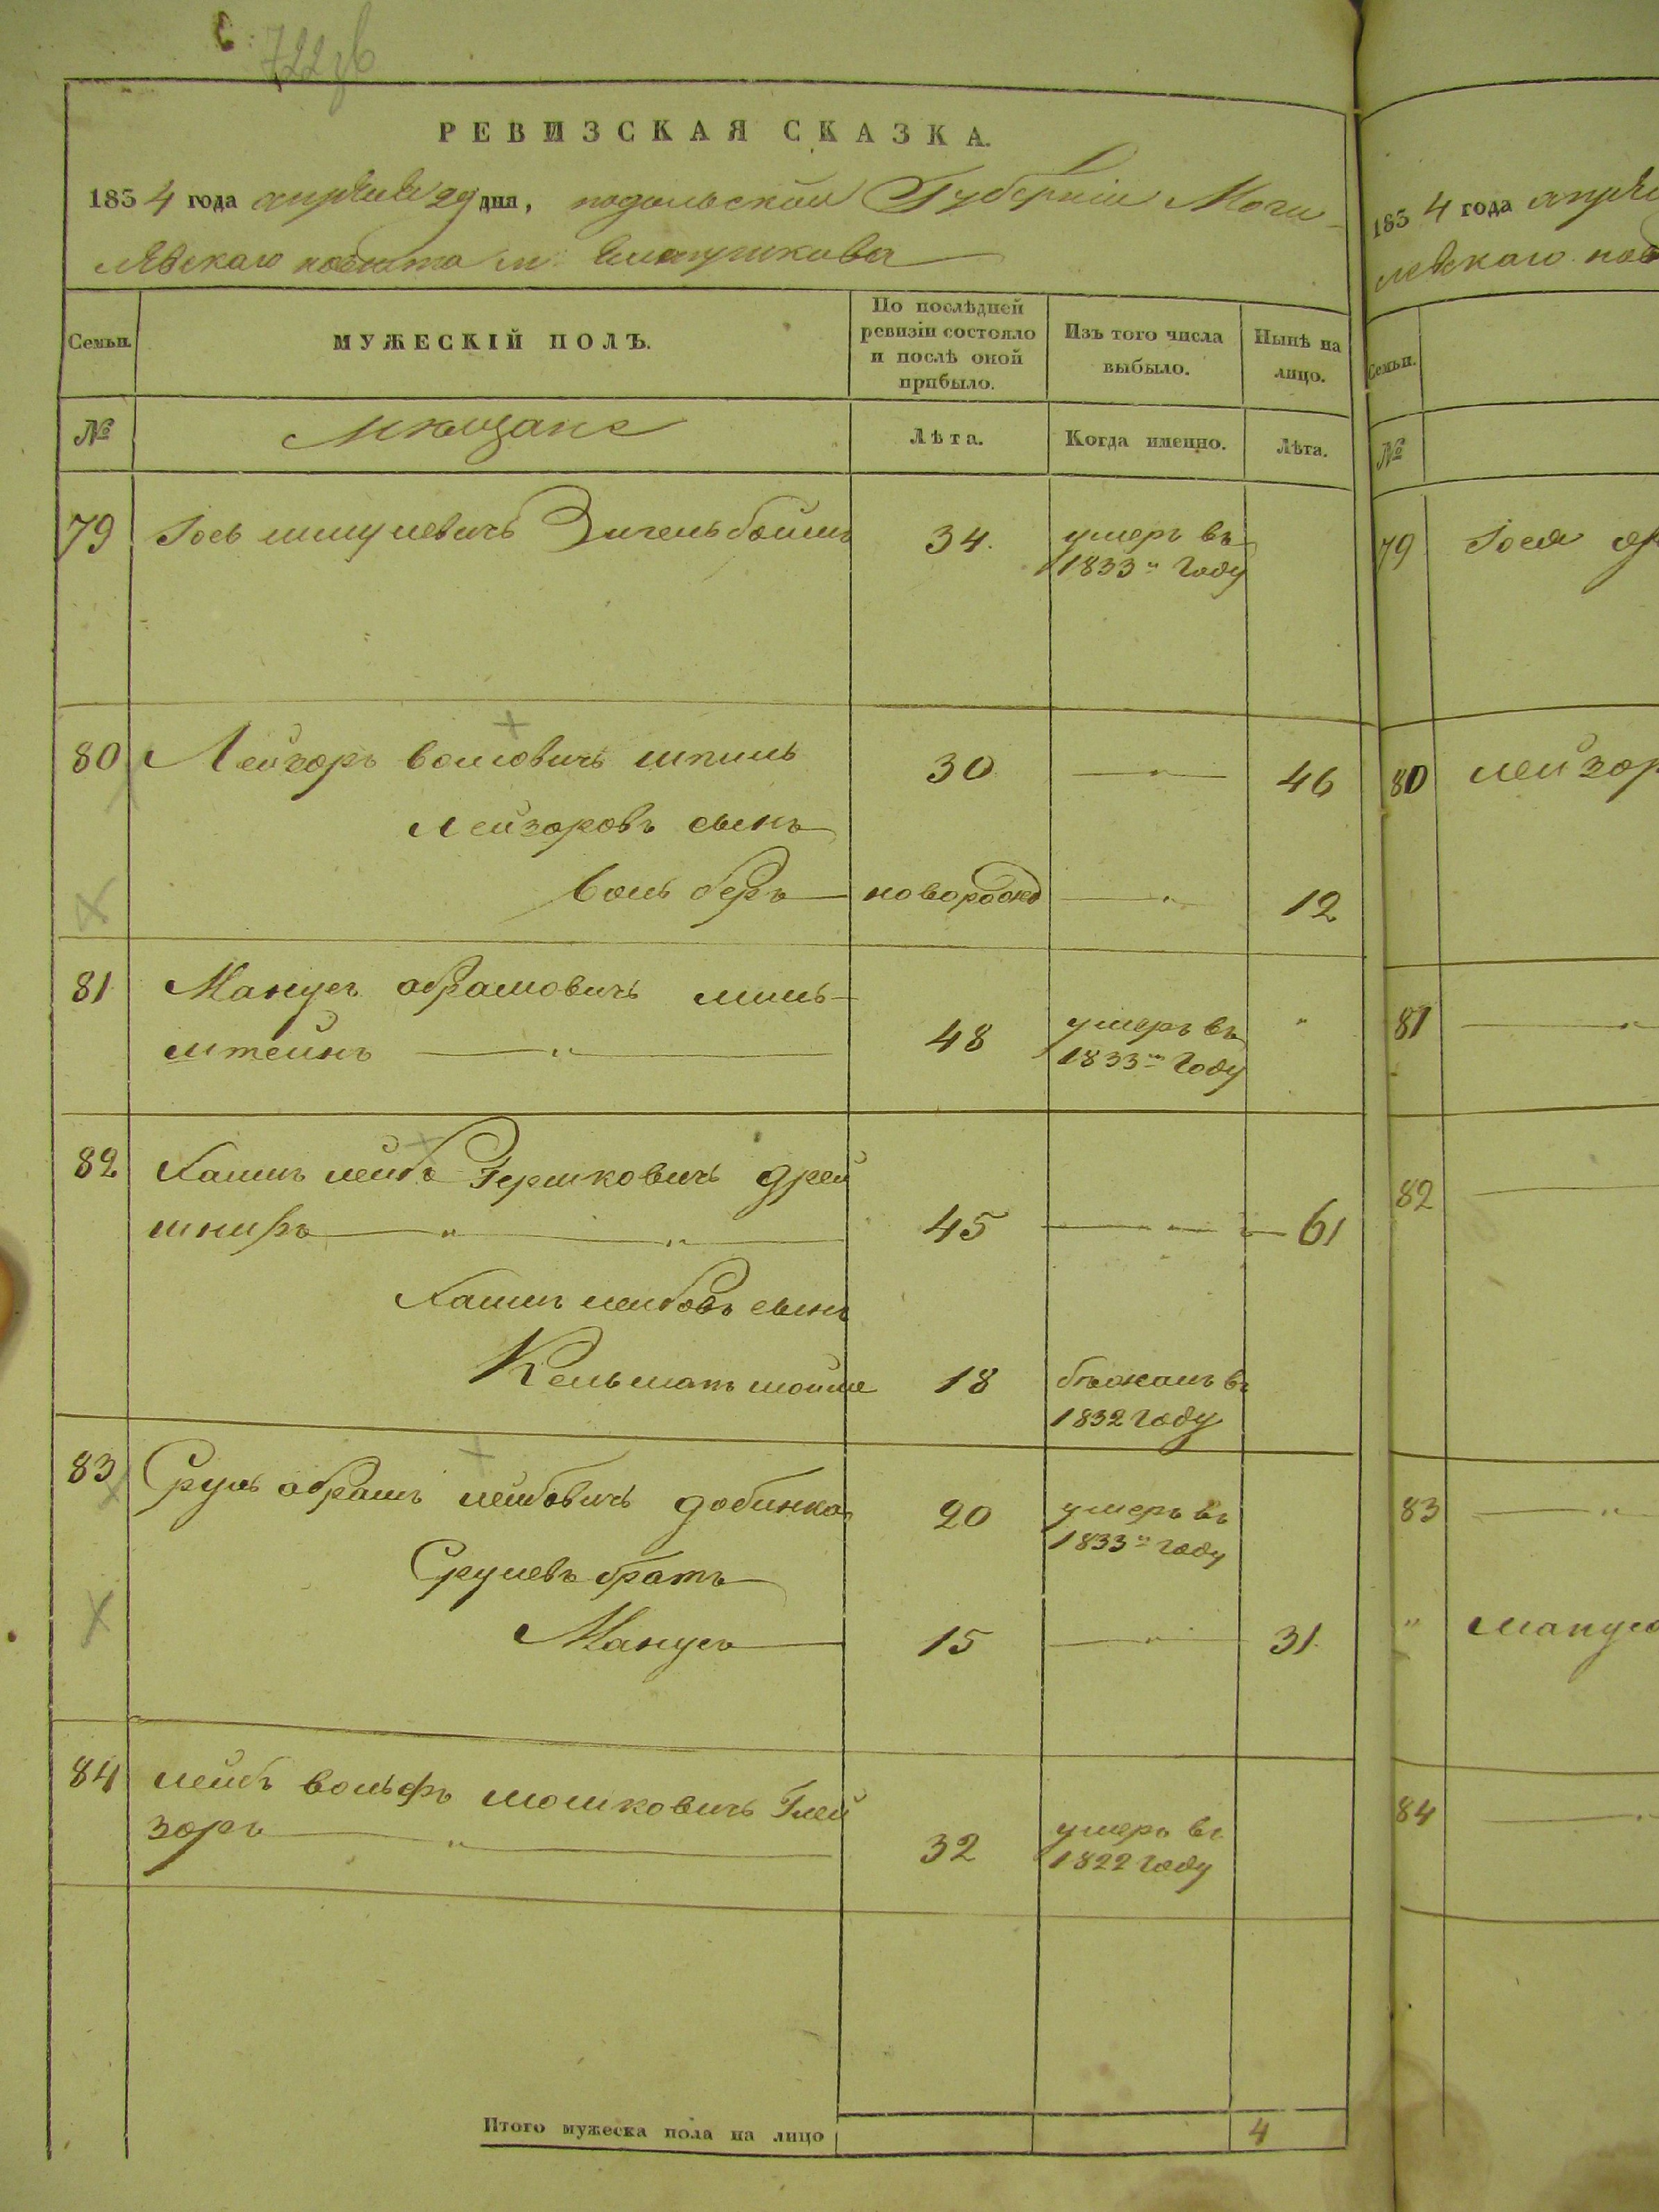 722
РЕВИЗСКАЯ СКАЗКА.
1834 года апреля 29 дня, подольской Губернiи Моги-
лѣвскаго повѣта м: Елтушкова
Семьи.
МУЖЕСКIЙ ПОЛЪ.
По послѣдней ревизiи состояло и послѣ оной прибыло.
Изъ того числа выбыло.
Нынѣ на лицо.
№ мѣщане Лѣта. Когда именно. Лѣта.
79 Iось шмулевичъ Зигельбоимъ 34. умеръ въ
1833м году
80 Лейзоръ волковичъ шпиль 30 — " — 46
Лейзоровъ сынъ
Воль беръ новорожд — " — 12
81 Манусъ абрамовичъ миль-
штейнъ — " — 48 умеръ въ "
1833м году
82 Хаимъ лейбъ Гершковичъ дрей
шнифъ — " — " — 45 — " — 61
Хаимъ лейбовъ сынъ
Кельманъ мошко 18 бѣжалъ въ
1832 году
83 Сруль абрамъ лейбовичъ добинка 20 умеръ въ
1833м году
Срулевъ братъ
Манусъ 15 — " — 31.
84 лейбъ вольфъ мошковичъ Глей
зоръ — " — 32 умеръ въ
1822 году
Итого мужеска пола на лицо 4
1834 года
левскаго пов
Семьи.
№
79 Iося
80 лейзор
81 — "
82 —
83 — "
" манусо
84 — "